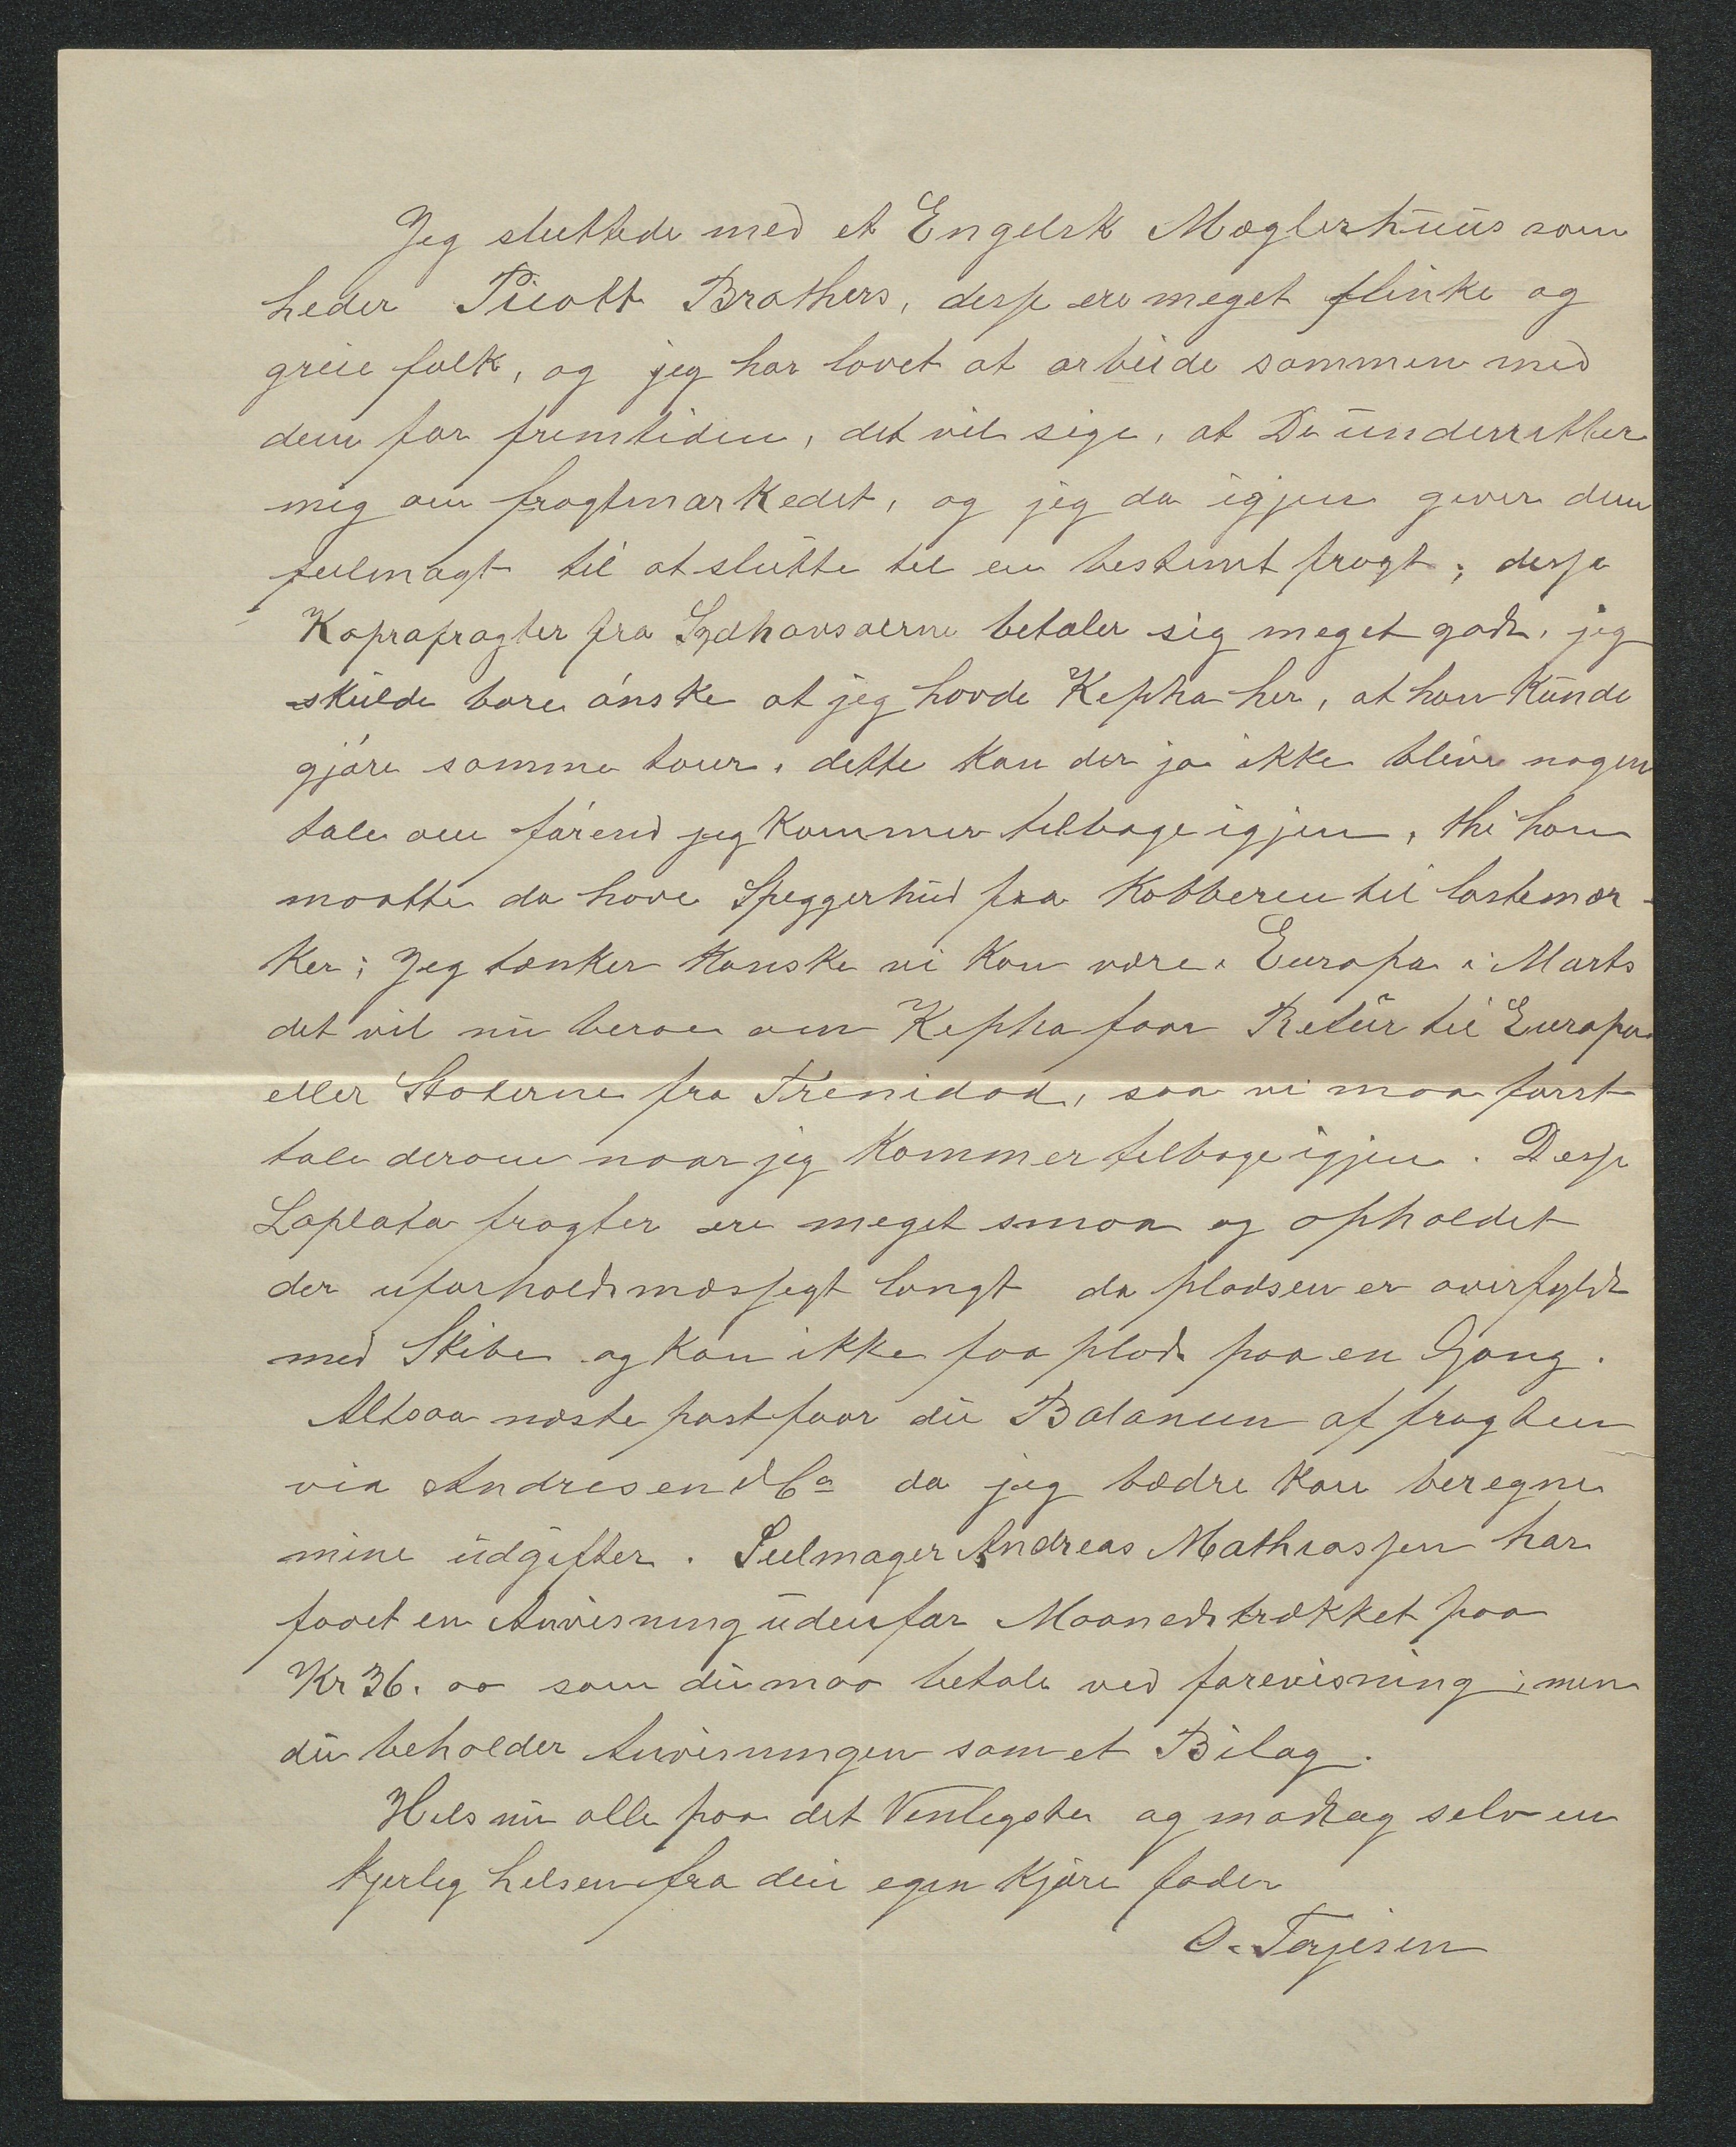 Jeg sluttede med et Engelsk Mæglerhuus som
heder Picott Brothers, desse ere meget flinke og
greie folk, og jeg har lovet at arbeide sammen med
dem for fremtiden, det vil sige, at De underretter
mig om fragtmarkedet, og jeg da igjen giver dem
fulmagt til at slutte til en bestemt fragt; desse
Koprafragter fra Sydhavsøerne betaler sig meget godt, jeg
skulde bare ønske at jeg havde Kepha her, at han kunde
gjøre samme tour, dette kan der jo ikke blive nogen
tale om førend jeg kommer tilbage igjen, thi han
maatte da have Speggerhud fra Kobberen til lastemær-
ker; Jeg tænker kanske vi kan være i Europa i Marts
det vil nu beroe om Kepha faar Retur til Europa
eller Staterne fra Trenidad, saa vi maa først
tale derom naar jeg kommer tilbage igjen. Desse
Laplata fragter ere meget smaa og opholdet
der uforholdsmæssigt langt da pladsen er overfyldt
med Skibe og kan ikke faa plads paa en Gang.
Altsaa næste post faar du Balancen af fragten
via Andresen & Co da jeg bædre kan beregne
mine udgifter. Seilmager Andreas Mathiassen har
faaet en Anvisning udenfor Maanedstrækket paa
Kr 36.00 som du maa betale ved forevisning; men
du beholder Anvisningen som et Bilag.
Hels nu alle paa det Venligste og modtag selv en
kjerlig helsen fra din egen kjøre fader
O. Terjesen